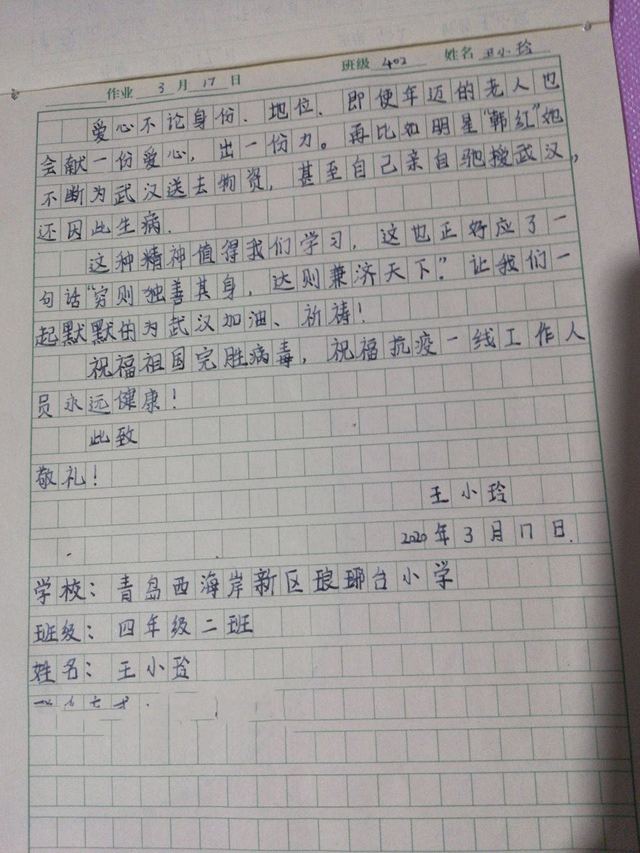 作业 3月17日 班级 402 姓名 王小玲
爱心不论身份、地位、即使年迈的老人也
会献一份爱心，出一份力。再比如明星“韩红”她
不断为武汉送去物资，甚至自己亲自驰援武汉，
还因此生病.
这种精神值得我们学习，这也正好应了一
句话“穷则独善其身，达则兼济天下.”让我们一
起默默的为武汉加油、祈祷！
祝福祖国完胜病毒，祝福抗疫一线工作人
员永远健康！
此致
敬礼！
王小玲
2020年3月17日.
学校：青岛西海岸新区琅琊台小学
班级：四年级二班
姓名：王小玲